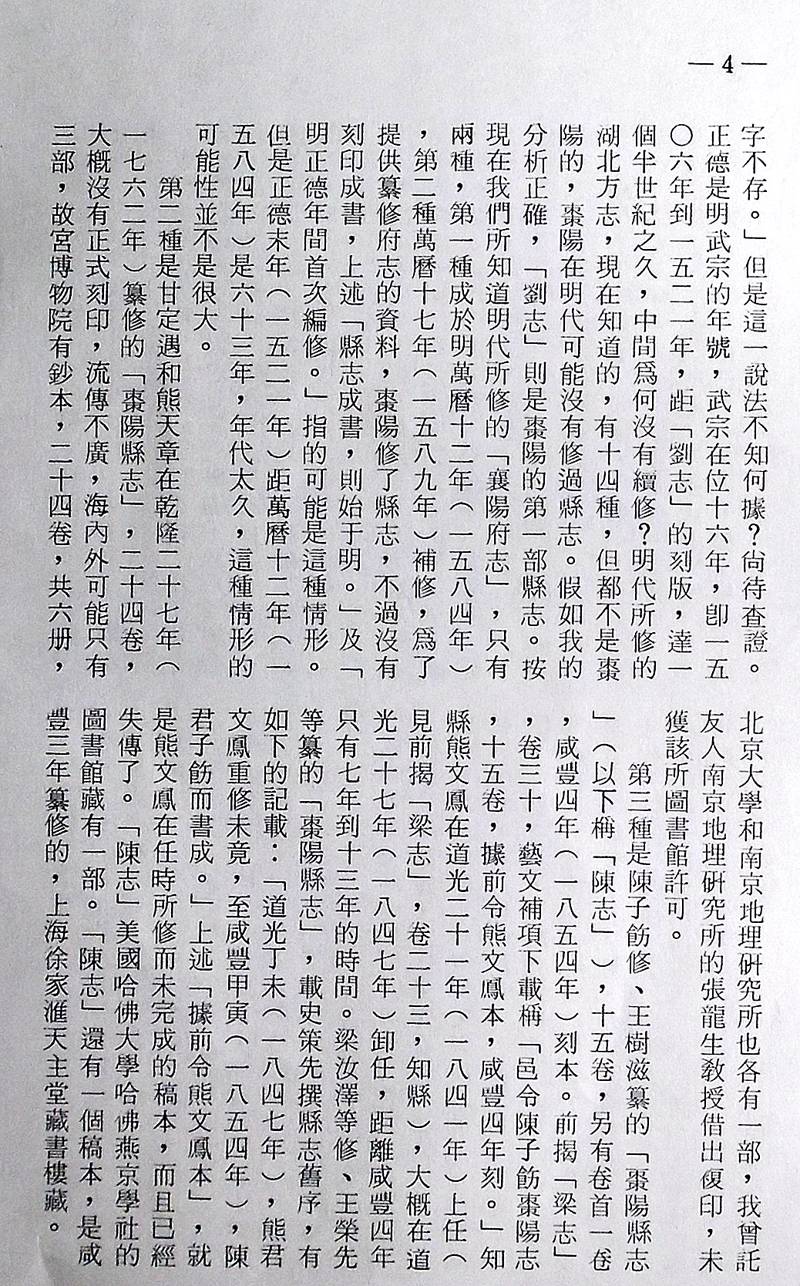 —4—
字不存。」但是這一說法不知何據？尙待查證。
正德是明武宗的年號，武宗在位十六年，卽一五
〇六年到一五二一年，距「劉志」的刻版，達一
個半世紀之久，中間爲何沒有續修？明代所修的
湖北方志，現在知道的，有十四種，但都不是棗
陽的，棗陽在明代可能沒有修過縣志。假如我的
分析正確，「劉志」則是棗陽的第一部縣志。按
現在我們所知道明代所修的「襄陽府志」，只有
兩種，第一種成於明萬曆十二年（一五八四年）
，第二種萬曆十七年（一五八九年）補修，爲了
提供纂修府志的資料，棗陽修了縣志，不過沒有
刻印成書，上述「縣志成書，則始于明。」及「
明正德年間首次編修。」指的可能是這種情形。
但是正德末年（一五二一年）距萬曆十二年（一
五八四年）是六十三年，年代太久，這種情形的
可能性並不是很大。
第二種是甘定遇和熊天章在乾隆二十七年（
一七六二年）纂修的「棗陽縣志」，二十四卷，
大概沒有正式刻印，流傳不廣，海內外可能只有
三部，故宮博物院有鈔本，二十四卷，共六册，
北京大學和南京地理研究所也各有一部，我曾託
友人南京地理研究所的張龍生教授借出復印，未
獲該所圖書館許可。
第三種是陳子飭修、王樹滋纂的「棗陽縣志
」（以下稱「陳志」），十五卷，另有卷首一卷
，咸豐四年（一八五四年）刻本。前揭「梁志」
，卷三十，藝文補項下載稱「邑令陳子飭棗陽志
，十五卷，據前令熊文鳳本，咸豐四年刻。」知
縣熊文鳳在道光二十一年（一八四一年）上任（
見前揭「梁志」，卷二十三，知縣），大概在道
光二十七年（一八四七年）卸任，距離咸豐四年
只有七年到十三年的時間。梁汝澤等修、王榮先
等纂的「棗陽縣志」，載史策先撰縣志舊序，有
如下的記載：「道光丁未（一八四七年），熊君
文鳳重修未竟，至咸豐甲寅（一八五四年），陳
君子飭而書成。」上述「據前令熊文鳳本」，就
是熊文鳳在任時所修而未完成的稿本，而且已經
失傳了。「陳志」美國哈佛大學哈佛燕京學社的
圖書館藏有一部。「陳志」還有一個稿本，是咸
豐三年纂修的，上海徐家滙天主堂藏書樓藏。